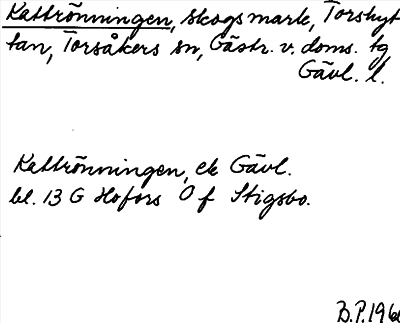 Kattrönningen, skogsmark, Torshyt
tan, Torsåkers sn, Gästr. v. doms. tg
Gävl. l.
Kattrönningen, ek Gävl.
bl. 13 G Hofors O f Stigsbo.
B.P. 196